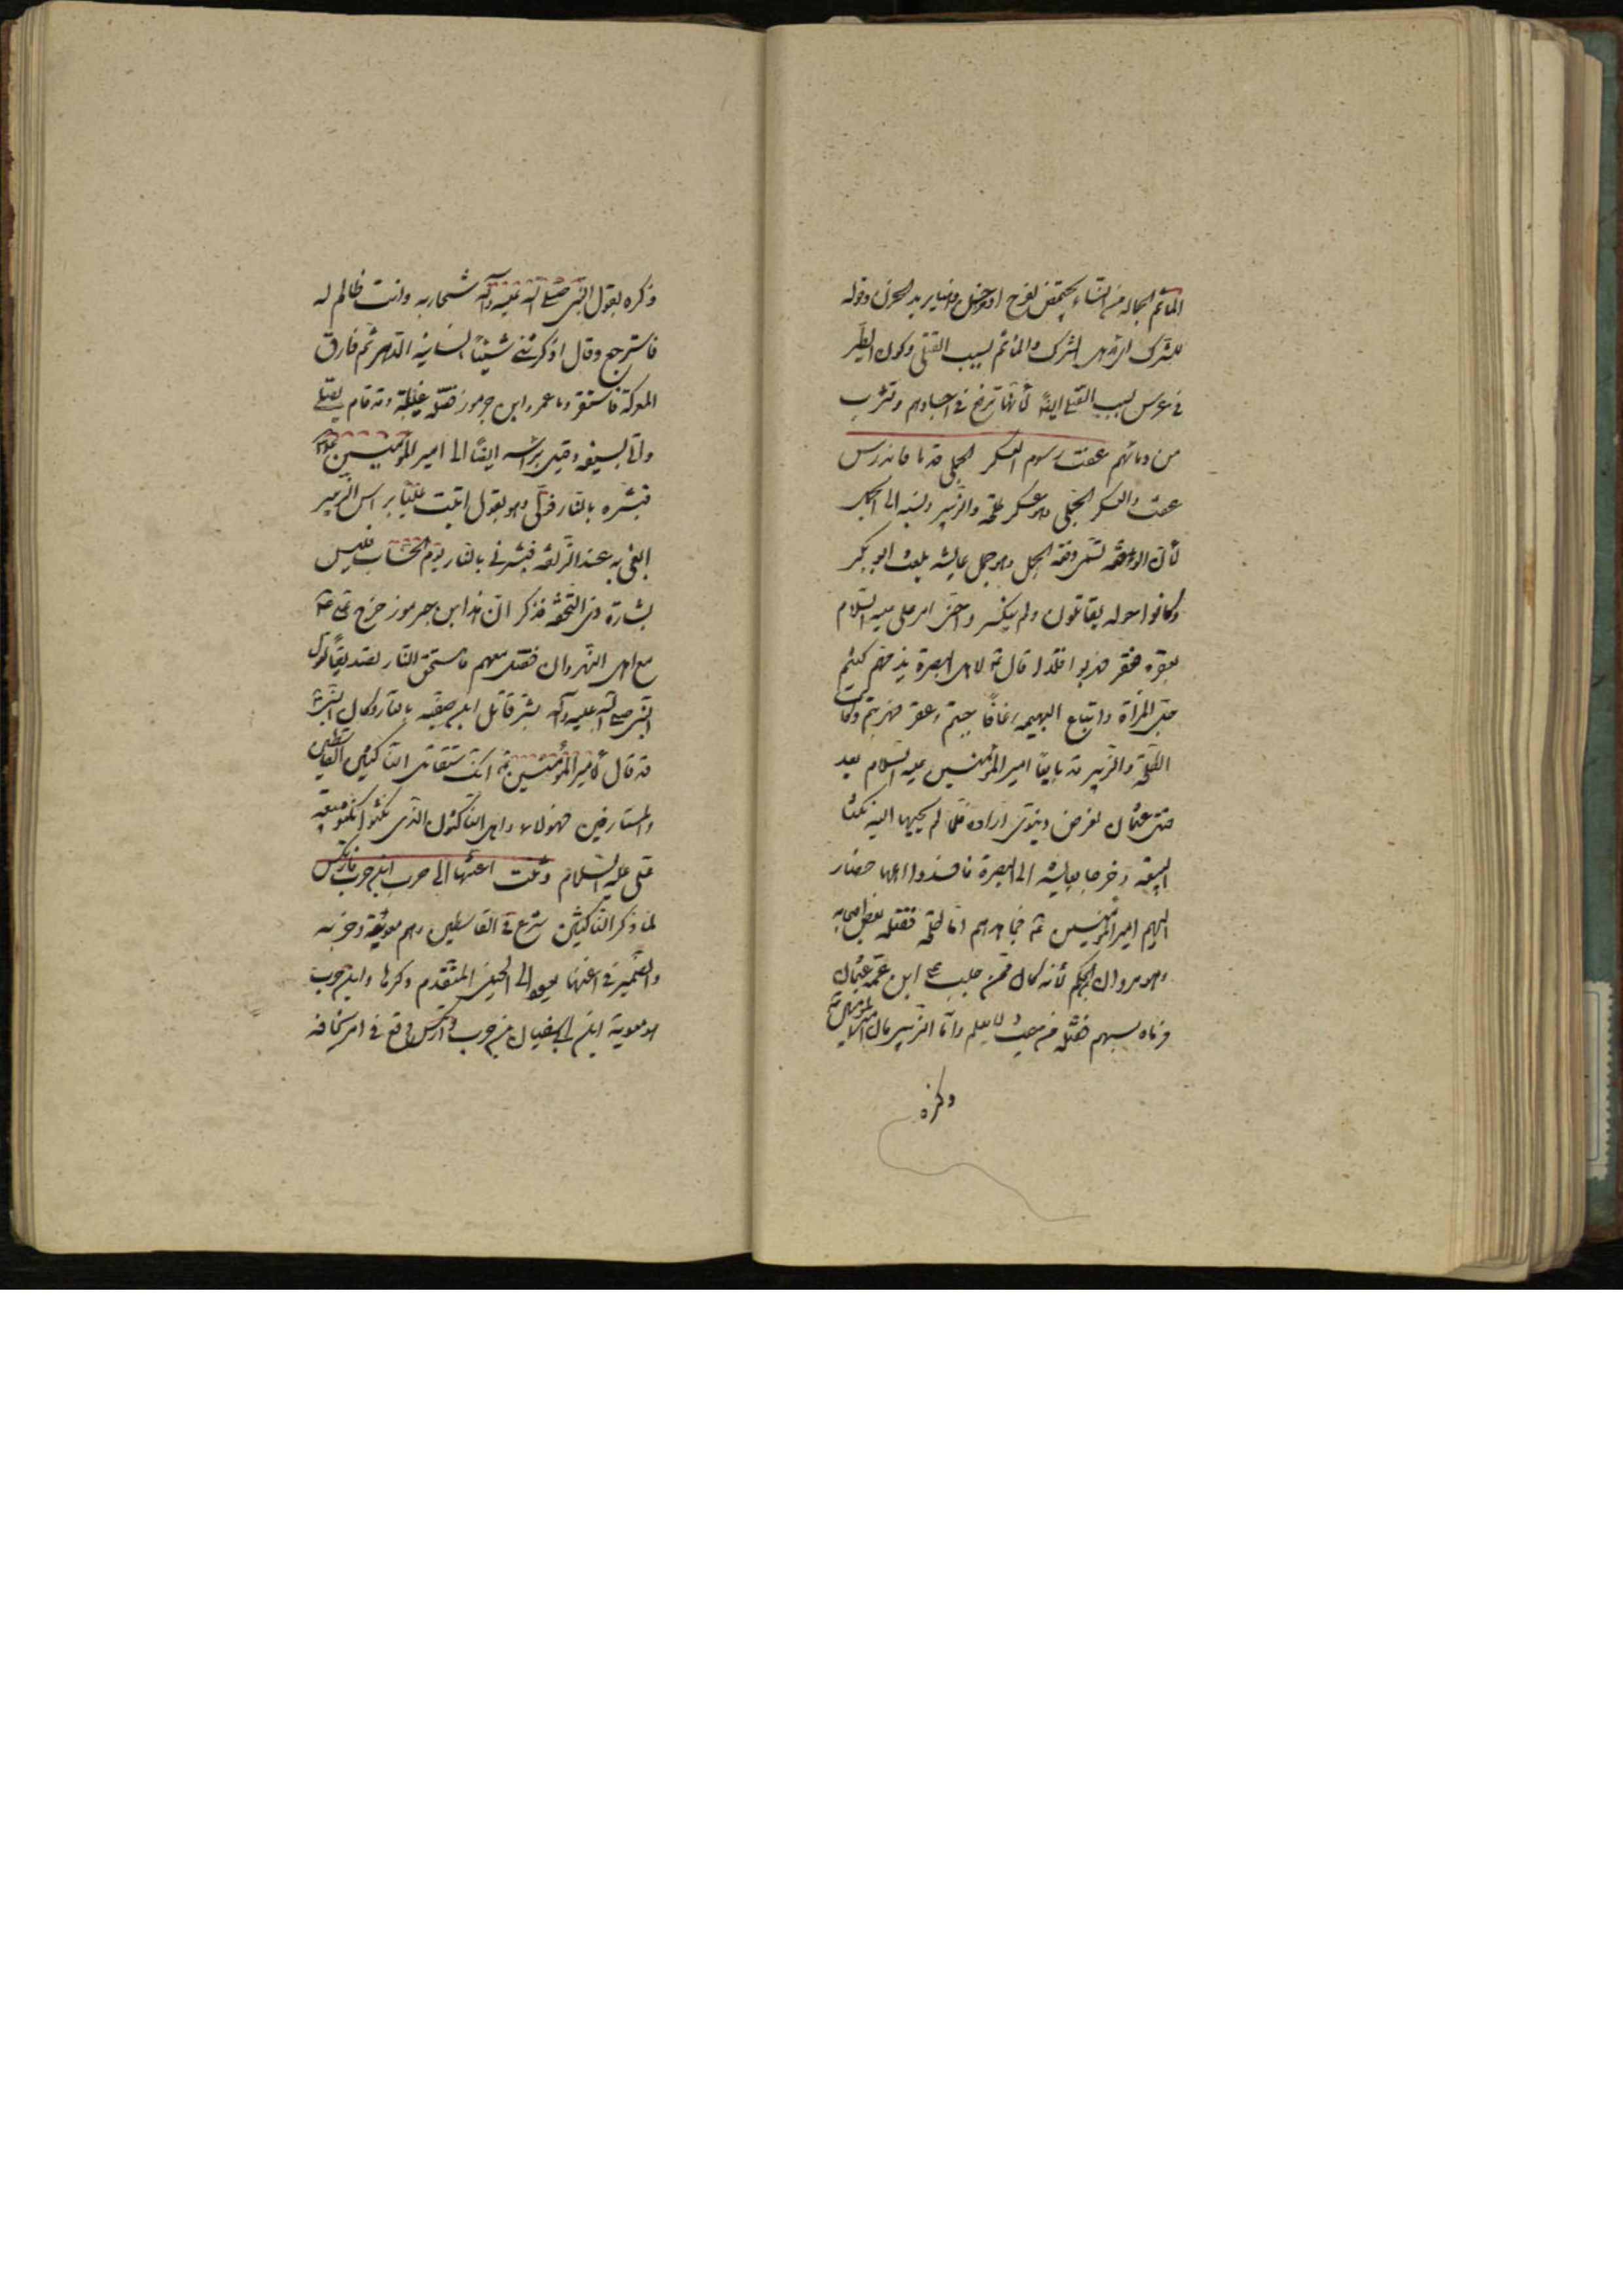 المأتم الجماله من النساء يجتمعن لفرح او حزن وهنا يريد الحزن وقوله
للشرك اي لاهل الشرك والمأتم لسبب القتلى وكون الطير
في عرس لسبب القتلى ايضا لأنها ترتع في اجسادهم وتشرب
من دمائهم عفت رسوم العسكر الجملي قدما فاندرس
عفت والعسكر الجملي وهو عسكر طلحة والزبير ونسبه الى الجمل
لأن الوقعة تسمى وقعة الجمل وهو جمل عايشه بنت ابو بكر
وكانوا حوله يقاتلون ولم ينكسر وا حتى امر علي عليه السلام
بعقره فعقر فهربوا فلذا قال ع لاهل البصرة يذمهم كنتم
جند المرأة واتباع البهيمه رغا فاجبتم وعقر فهربتم وكانت
طلحة والزبير قد بايعا امير المؤمنين عليه السلام بعد
قتل عثمان لغرض دنيوي اراده فلما لم يجبهما اليه نكثا
البيعة وخرجا بعايشه الى البصرة فافسدوا اهلها فصار
اليهم امير المؤمنين ع فجاهدهم اما طلحة فقتله بعض اصحابه
وهو مروان الحكم لأنه كان فمن جلب على ابن عمه عثمان
فرماه بسهم فقتله من حيث لا يعلم وأما الزبير فان امير المؤمنين ع
وذكره
ذكره بقول النبي صلى الله عليه وآله ستحاربه وانت ظالم له
فاسترجع وقال اذكرتني شيئا انسانيه الدهر ثم فارق
المعركة فاستقر وما عمرو ابن جرموز فقتله غيلة وقد قام يصلي
وأتى بسيفه وقيل برأسه ايضا الى امير المؤمنين عليه السلام
فبشره بالنار فولى وهو يقول اتيت عليا برأس الزبير
ابغي به عنده الزلفة فبشرني بالنار يوم الحساب فبئس
بشارة ذي التحفة فذكر ان هذا ابن جرموز خرج على علي ع
مع اهل النهروان فقتل معهم فاستحق النار تصديقا لقول
النبي صلى الله عليه وآله بشر قاتل ابن صفيه بالنار وكان النبي ص
قد قال لأمير المؤمنين ع انك ستقاتل الناكثين والقاسطين
والمارقين فهؤلاء اهل الناكثون الذي نكثوا بيعته
علي عليه السلام وثنت اعنتها الى حرب ابن حرب فارتكس
لما ذكر الناكثين شرع في القاسطين وهم معوية وحزبه
والضمير في اعنتها يعود الى الخيل المتقدم ذكرها وابن حرب
هو معوية ابن ابي سفيان بن حرب وارتكس وقع في امر نجا منه